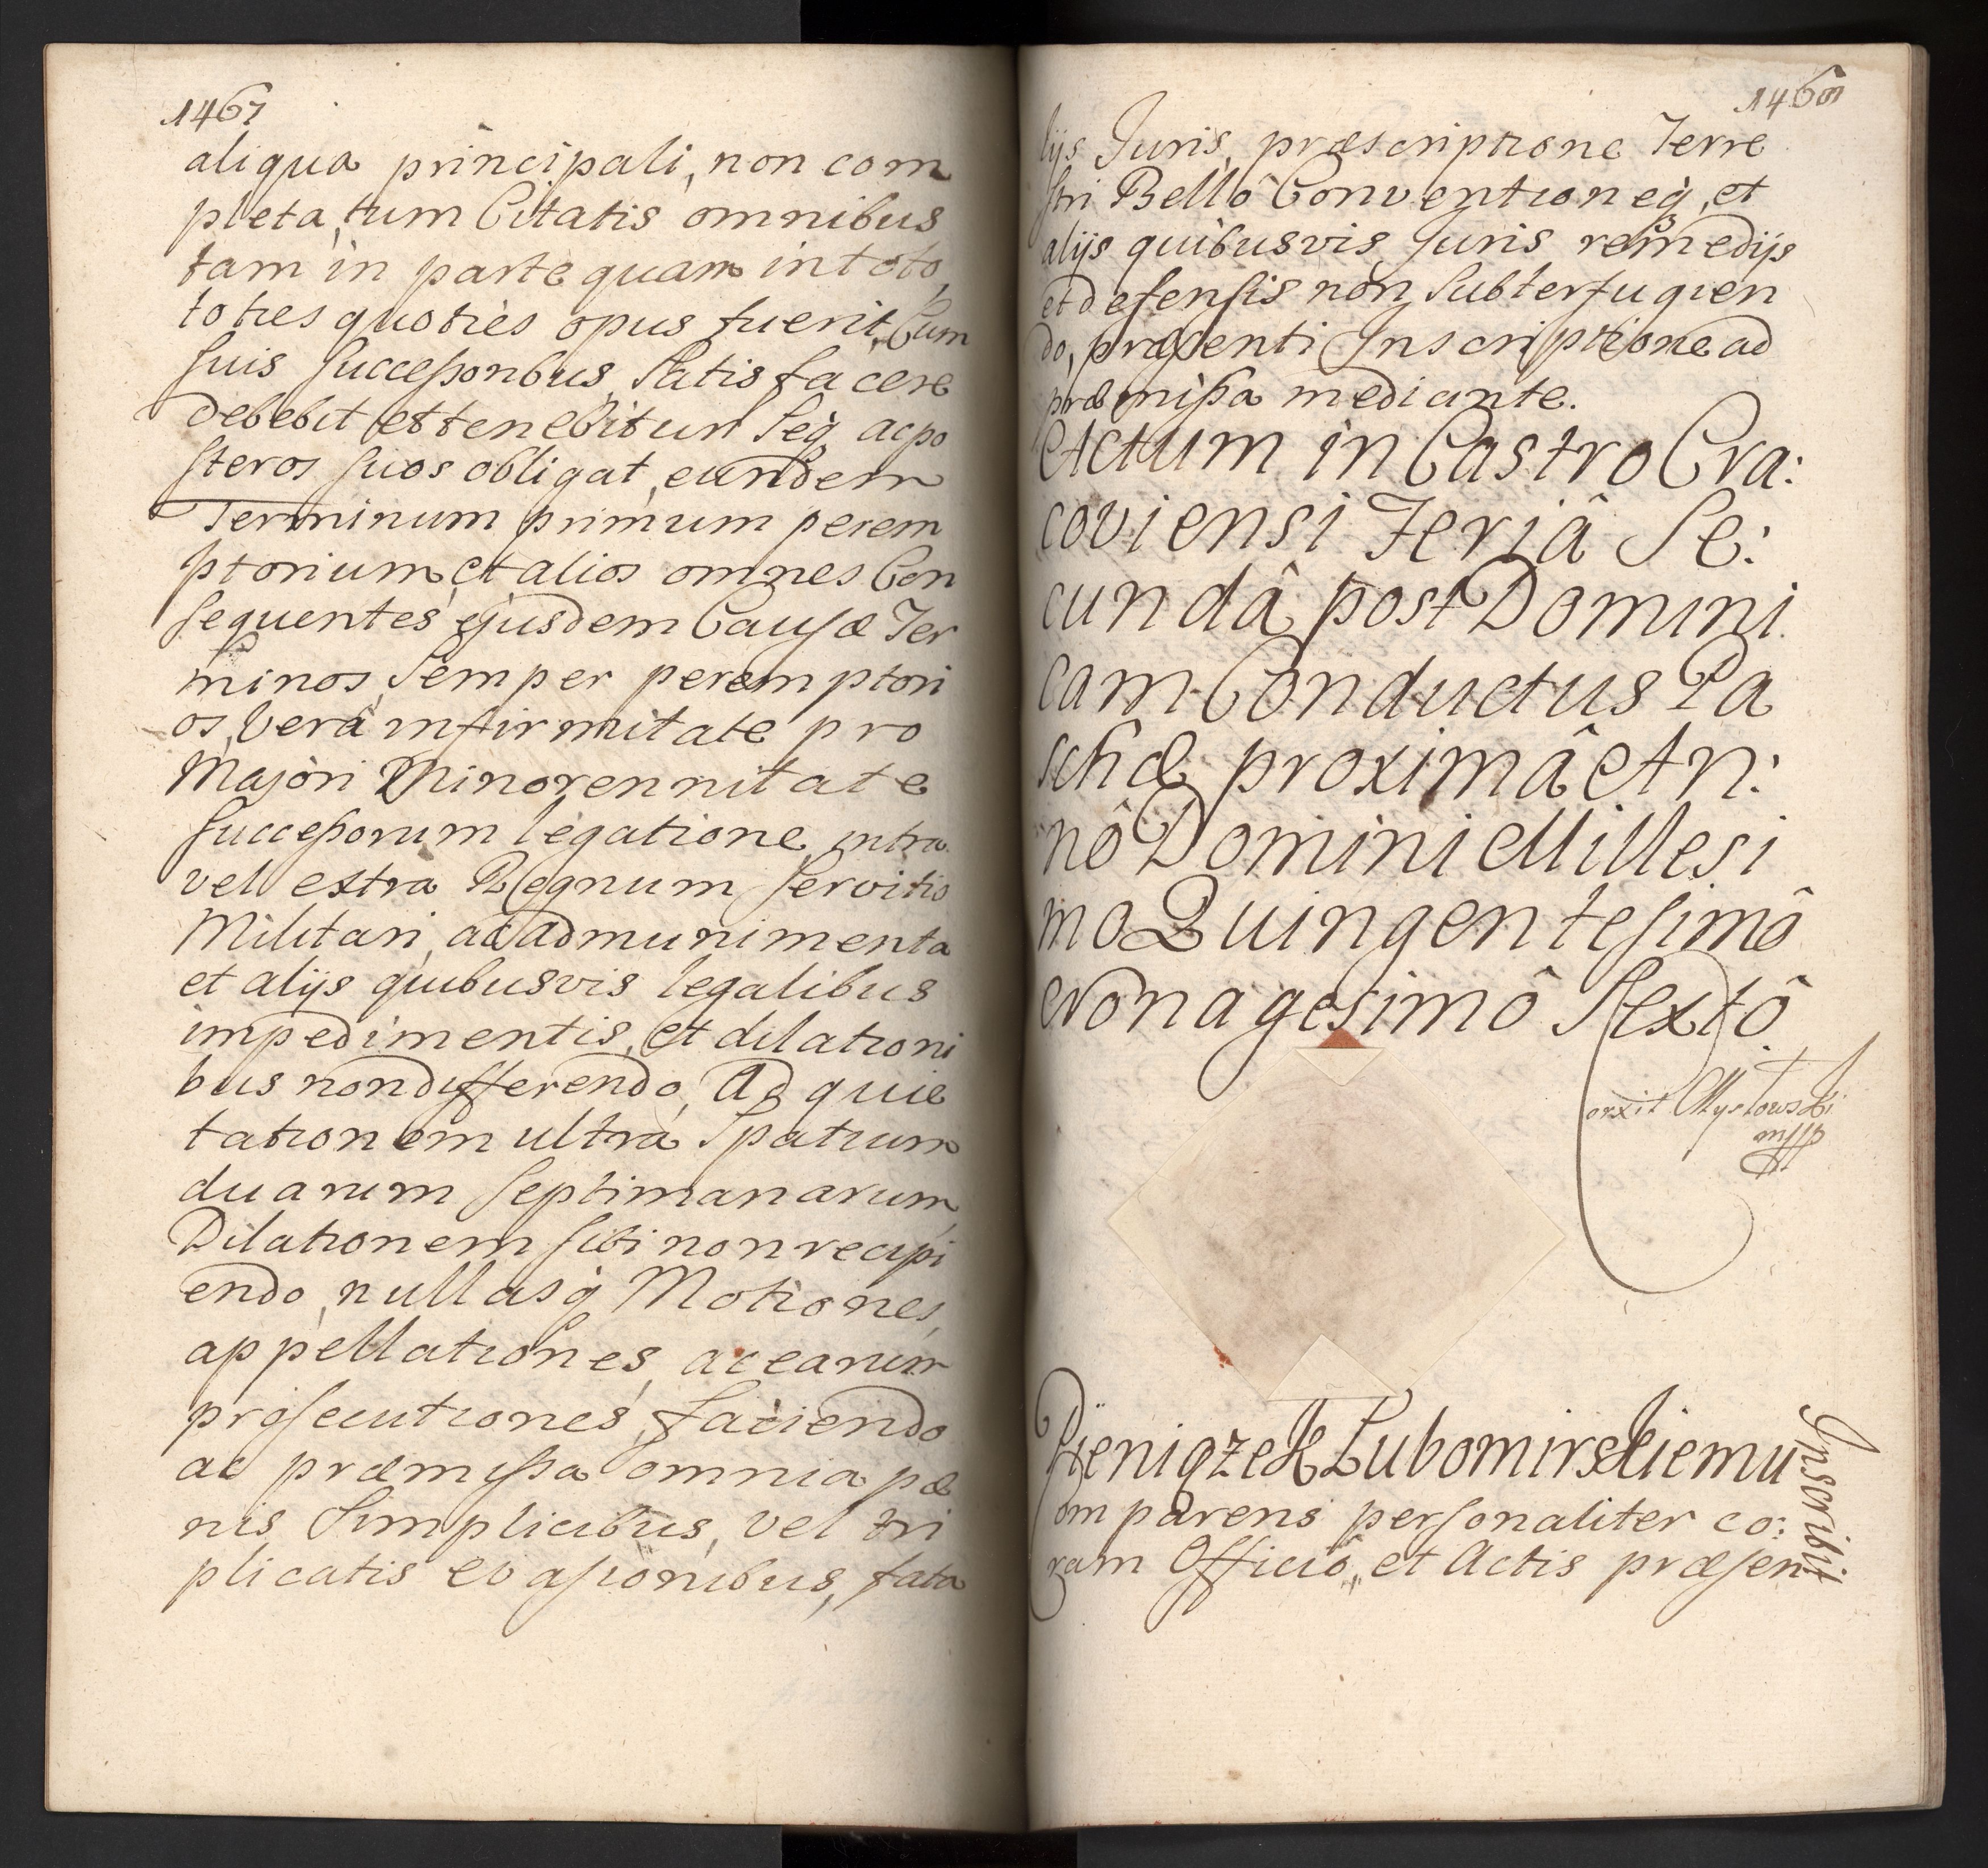 1467
aliqua principali, non com
pleta, tum Citatis omnibus
tam in parte quam in toto,
toties quoties opus fuerit, Cum
suis successoribus, Satisfacere
debebit et tenebitur Seq̀ ac po
steros suos obligat, eundem
Terminum primum perem
ptorium, et alios omnes Con
sequentes ejusdem Causæ Ter
minos, Semper peremptori
os, Verâ infirmitate pro
Majori Minorennitate
successorum legatione intra
vel extra Regnum, servitio
Militari, ac ad munimenta
et alijs quibusvis legalibus
impedimentis, et dilationi
bus non differendo, Ad quie
tationem ultra Spatium
duarum septimanarum,
Dilationem sibi non recipi
endo, nullasq̀ Motiones,
appellationes, ac earum
prosecutiones, faciendo
ac præmissa omnia pæ
nis Simplicibus, vel tri
plicatis evasionibus, fata
1468
lijs Juris, præscriptione Terre
stri Bellô Conventioneq̀, et
alijs quibusvis Juris remedijs
et defensis non subterfugien
do, præsenti Inscriptione ad
præmissa mediante.
Actum in Castro Cra:
coviensi Feriâ Se:
cundâ post Domini
cam Conductus Pa
schæ proximâ An:
nô Domini Millesi
mo Quingentesimô
Nonagesimô Sextô.
Pieniązek Lubomirskiemu
Inscribit
Comparens personaliter co:
ram Officiô, et Actis præsen